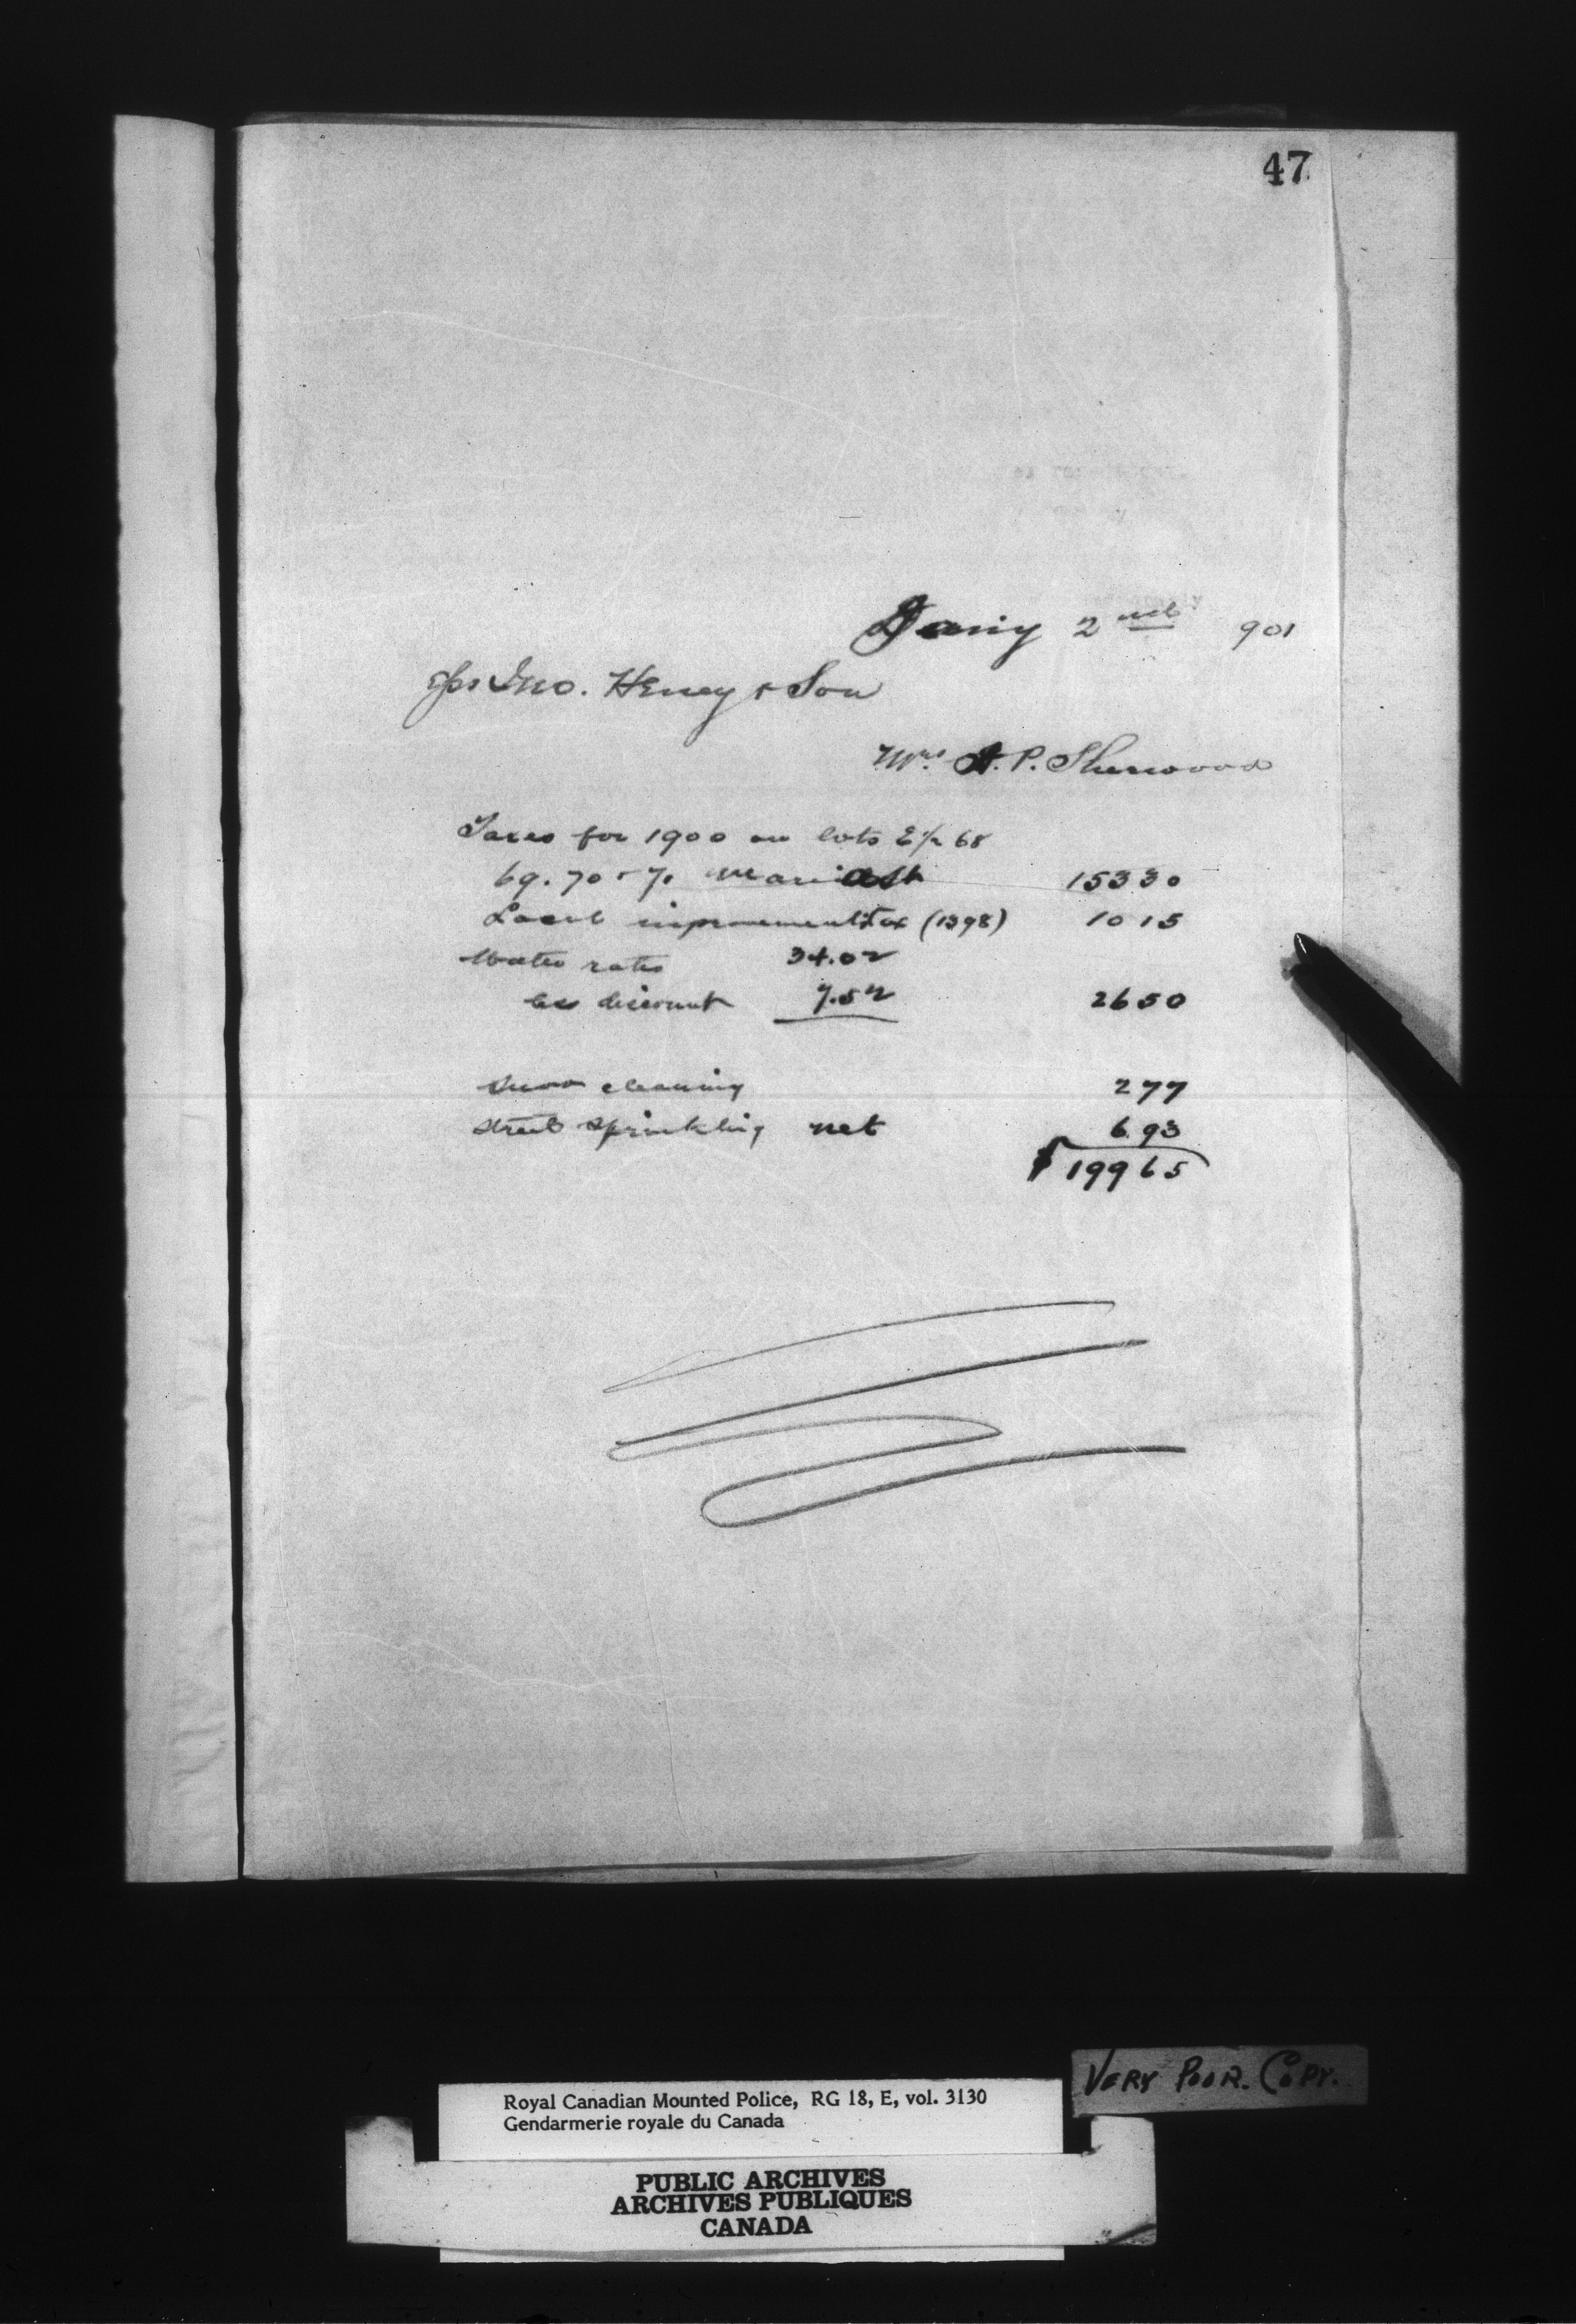 47
Jany 2nd 901
Jno. Heney & Son
Mrs A. P. Sherwood
Taxes for 1900 on lots E½ 68
69. 70 & 71 Maria St 153 30
Local improvement Tax (1398) 10 15
Water rates 34.02
less discount 7.52 26 50
Snow cleaning 2 77
Street sprinkling net 6 93
$199 65
VERY POOR. COPY.
Royal Canadian Mounted Police, RG 18, E, vol. 3130
Gendarmerie royale du Canada
PUBLIC ARCHIVES
ARCHIVES PUBLIQUES
CANADA